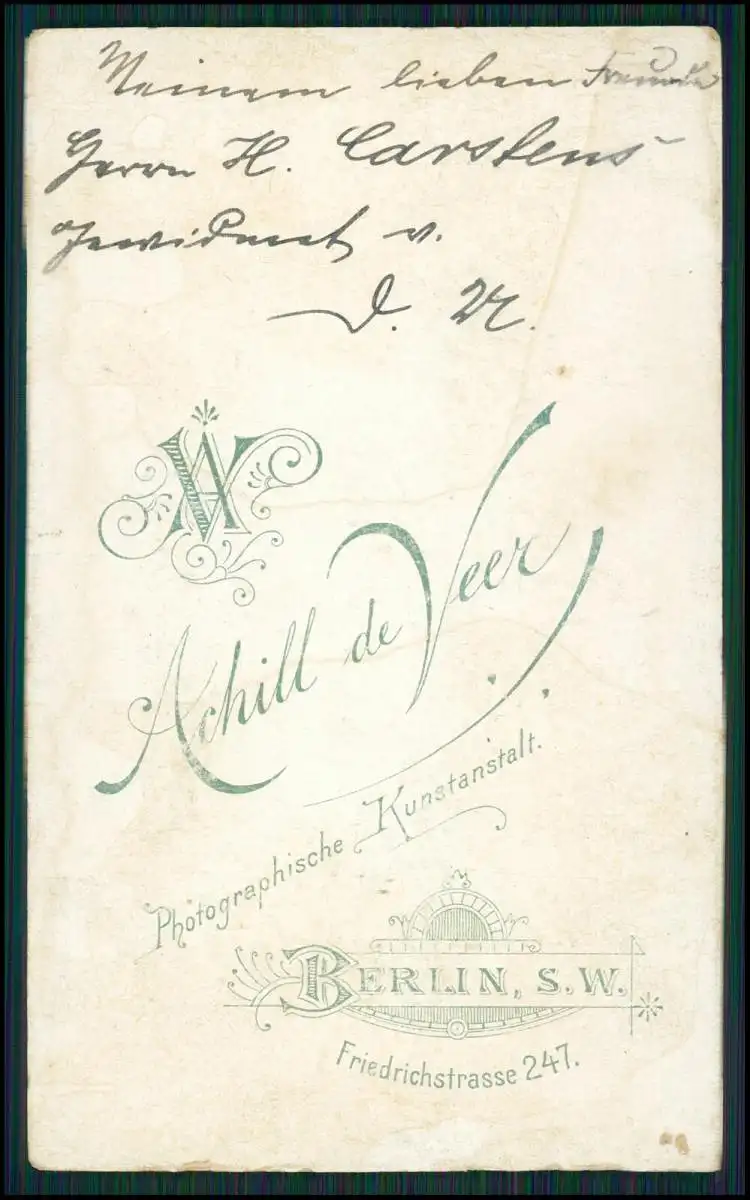 Meinem lieben Freunde
Herrn H. Carstens
gewidmet v.
D. U.
AV
Achill de Veer
Photographische Kunstanstalt.
BERLIN, S.W.
Friedrichstrasse 247.